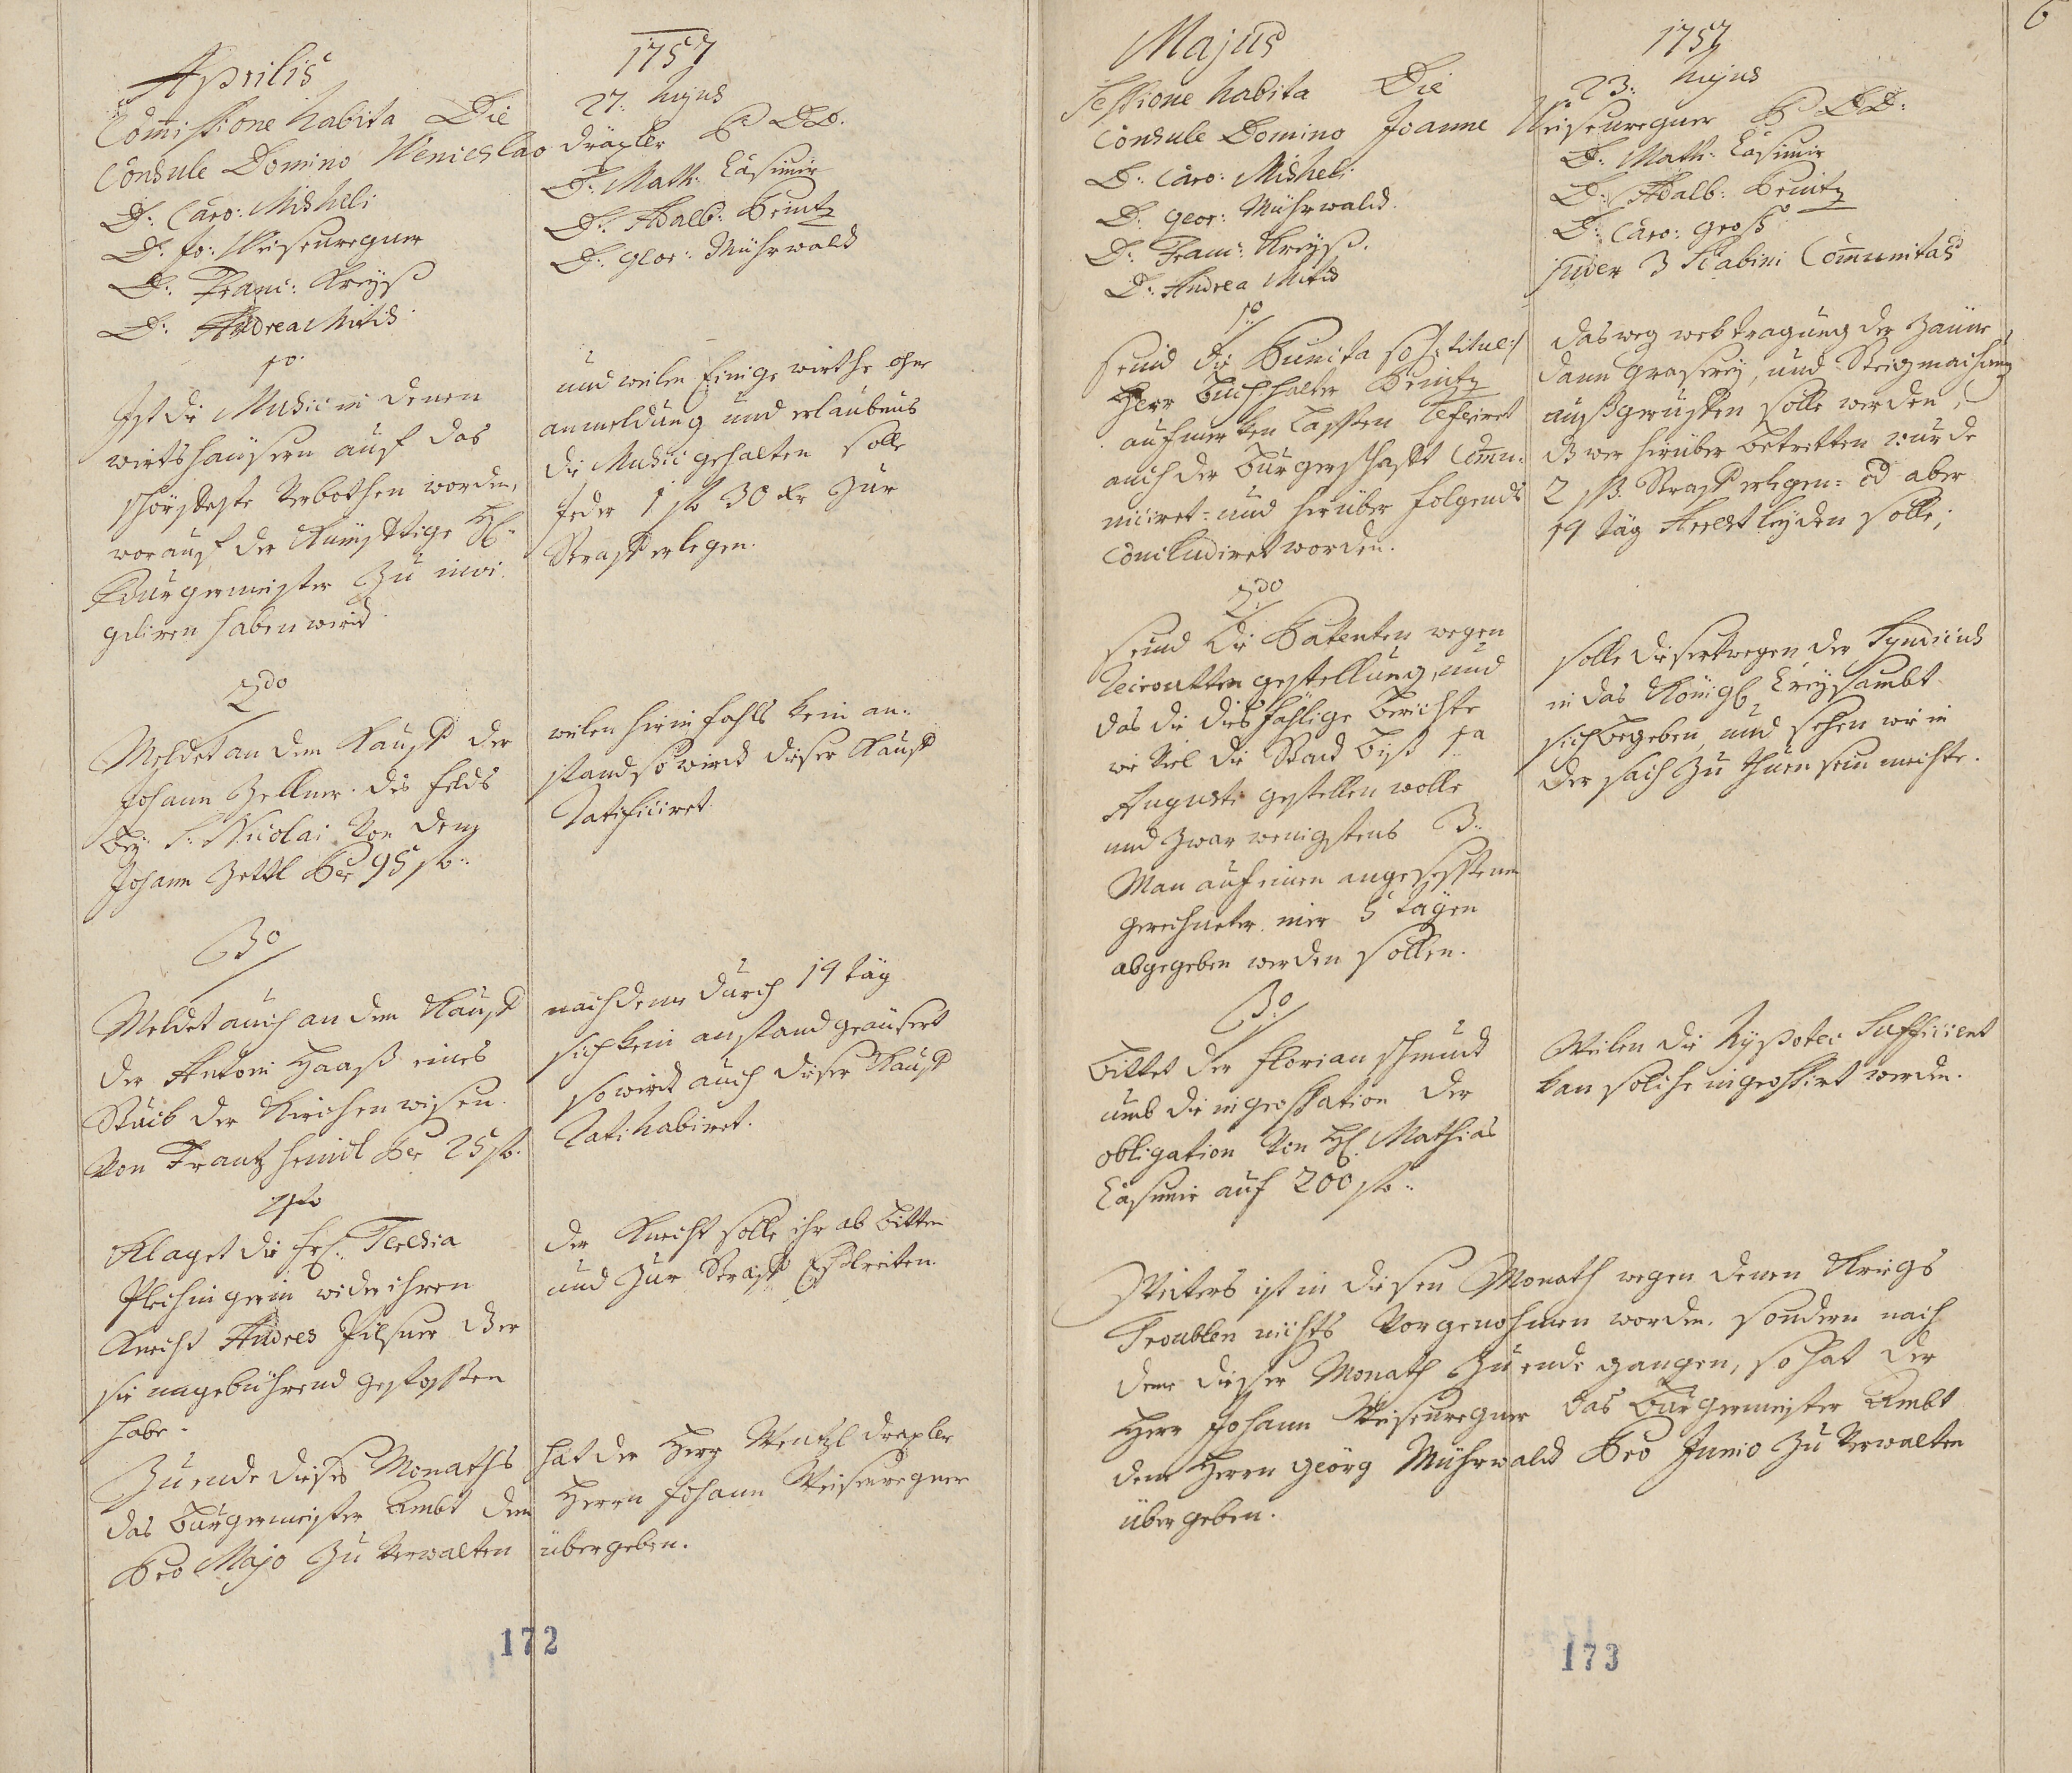 Aprilis
1757
Commissione habita Die
27: hujus
Consule Domino Wenceslao Draxler P DD.
D: Caro: Misheli
D: Math: Casimir
D: Jo: Weisenregner
D: Adalb: Brintz
D: Franc: Kreyß
D: Geor: Mührwald
D: Andrea Mitis
1o
Ist die Music in denen
wirtshäusern auf das
schörffeste verbothen worden,
worauf der Kunfftige H:
Bürgermeister zu invi
giliren haben wird.
und weilen Einige wirthe ohne
anmeldung und erlaubnus
die Music gehalten solle
Jeder 1 fl 30 xr zur
Straff erlegen.
2do
Meldet an den Kauff der
Johann Zellner des felds
bey S: Nicolai von dem
Johann Zettl per 95 fl:
weilen hirin fahls kein an
stand so wird dieser Kauff
Ratificiret.
3o
Meldet auch an den Kauff
der Antoni Haaß eines
Stück der Kirchen wisen
von Frantz heindl per 25 fl.
nachdeme durch 14 täg
sich kein anstand geäusert
so wird auch dieser Kauff
Ratihabiret.
4to
Klaget die Fr: Teresia
Plechingerin wider ihren
Knecht Andres Pilsner der
sie ungebührend gestossen
habe.
der Knecht solle ihr ab bitten
und zur Straff Eßlreiten.
Zu ende dieses Monaths hat der Herr Wentzl Draxler
das Bürgermeister Ambt dem Herrn Johann Weisenregner
Pro Majo zu verwalten übergeben.
172
6
Majus
1757
Sessione habita Die
23: hujus
Consule Domino Joanne Weisenregner P DD:
D: Caro: Misheli
D: Math: Casimir
D: Geor: Mührwald.
D: Adalb: Brintz
D: Franc: Kreyß.
D: Caro: Groß
D: Andrea Mitis
Juder 3 Scabini Communitas
1o
Seind die Puncta so
Herr Buchhalter Brintz
aufmerken lassen
auch der Bürgerschafft Commu
niciret und hirüber folgends
Concludiret worden.
das weg wektragung der Zäune
dann Graserey, und Steigmachung
außgeruffen solle werden,
3 wer hirüber betretten wurde
2 fl. Straff erlegen od aber
14 täg Arrest leyden solle;
2do
Seind die Patenten wegen
Recroutten gestellung, und
das die diesfählige Berichte
wie viel die Stadt biß 1a
Augusti gestellen wolle
und zwar wenigstens 3:
Man auf einen angesessenen
gerechneter. nier 5 tägen
abgegeben werden sollen.
solle diesertwegen der Syndicus
in das Königl: Creysambt
sich begeben, und sehen wie in
der sach zu thuen sein mechte.
3o
Bittet der Florian Schmidt
umb die ingrossation der
obligation von H: Mathias
Casimir auf 200 fl:
Weilen die Hypotec Sufficient
kan solche ingrossirt werden.
Weiters ist in diesen Monath wegen denen Kriegs
Troublen nichts vorgenohmen worden. sondern nach
deme dieser Monath zu ende gangen, so hat der
Herr Johann Weisenregner das Bürgermeister Ambt
dem Herrn Georg Mührwald Pro Junio zu verwalten
übergeben.
173